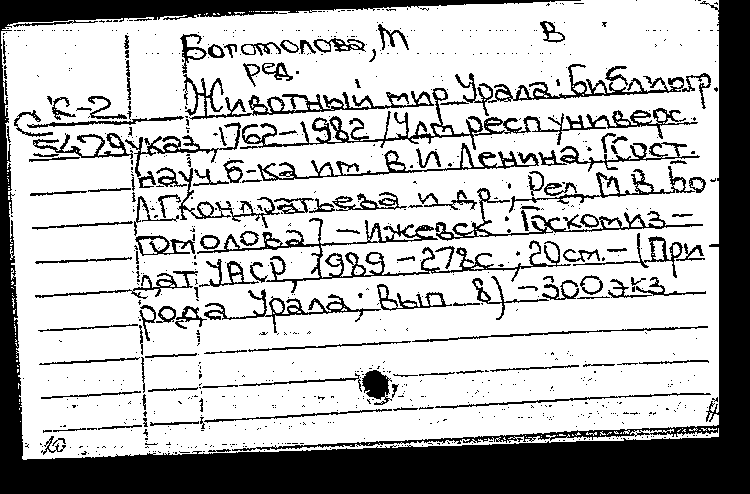 Богомолова, М В
ред.
К-2 Животный мир Урала: Библиогр.
5479 указ, 1762-1982 / Удм респ универс.
науч б-ка им. В.И. Ленина; [Сост.
Л.Г.Кондратьева и др; Ред М.В. Бо-
гомолова] - Ижевск: Госкомиз-
дат УАСР, 1989 - 278с.; 20см. - (При-
рода Урала; Вып. 8) - 300 экз.